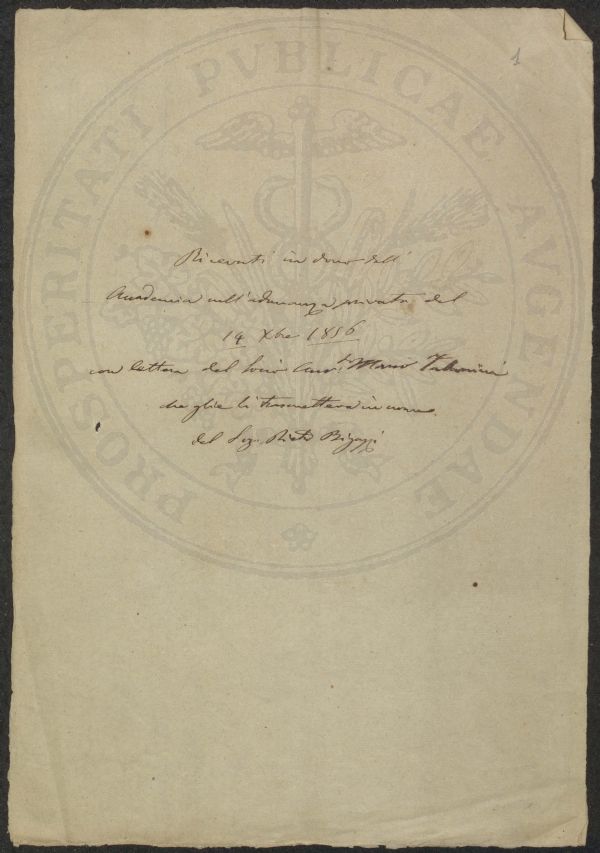 1
PROSPERITATI PVBLICAE AVGENDAE
Ricevuti in dono dell'
Accademia nell'adunanza privata del
14 Xbre 1856
con lettera del Socio
che glie li trasmetteva in nome
del Sigr. Bigazzi